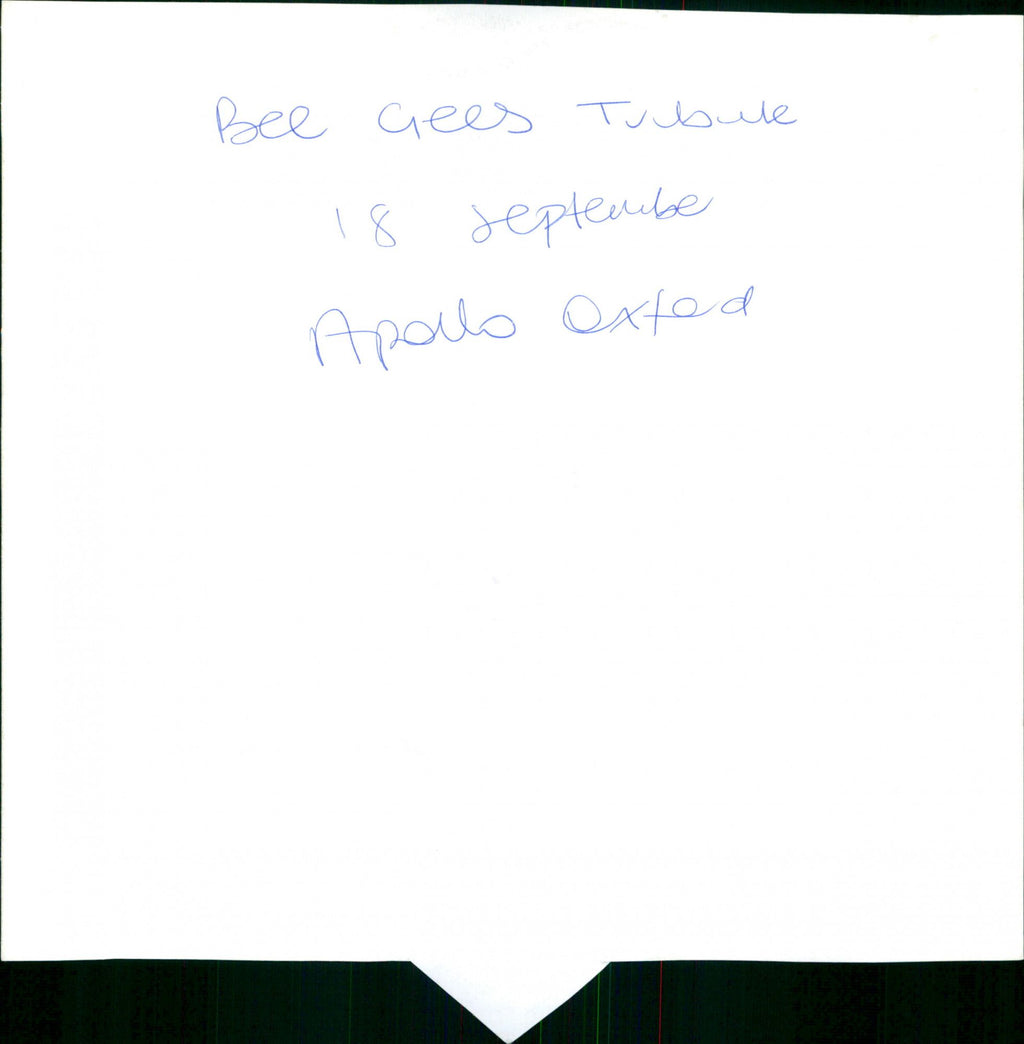 Bee Gees Tribute
18 September
Apollo Oxford